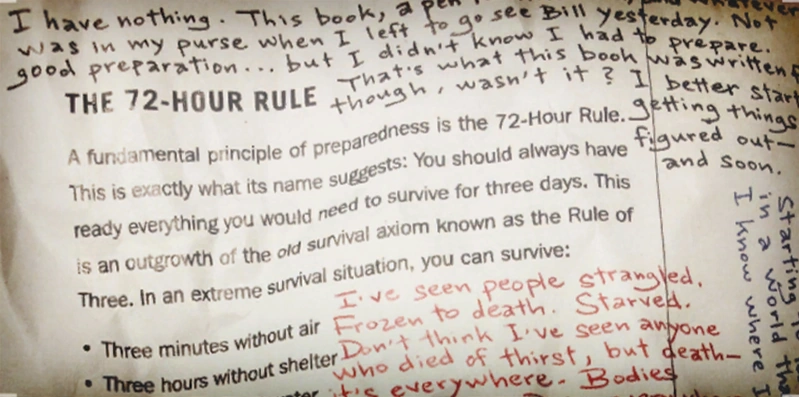 I have nothing. This book, a pen
was in my purse when I left to go see Bill yesterday. Not
good preparation... but I didn't know I had to prepare.
That's what this book was written
though, wasn't it? I better start
getting things
figured out—
and soon.
THE 72-HOUR RULE
A fundamental principle of preparedness is the 72-Hour Rule.
This is exactly what its name suggests: You should always have
ready everything you would need to survive for three days. This
is an outgrowth of the old survival axiom known as the Rule of
Three. In an extreme survival situation, you can survive:
• Three minutes without air
• Three hours without shelter
I've seen people strangled.
Frozen to death. Starved.
Don't think I've seen anyone
who died of thirst, but death—
it's everywhere. Bodies
Starting
in a world
I know where I